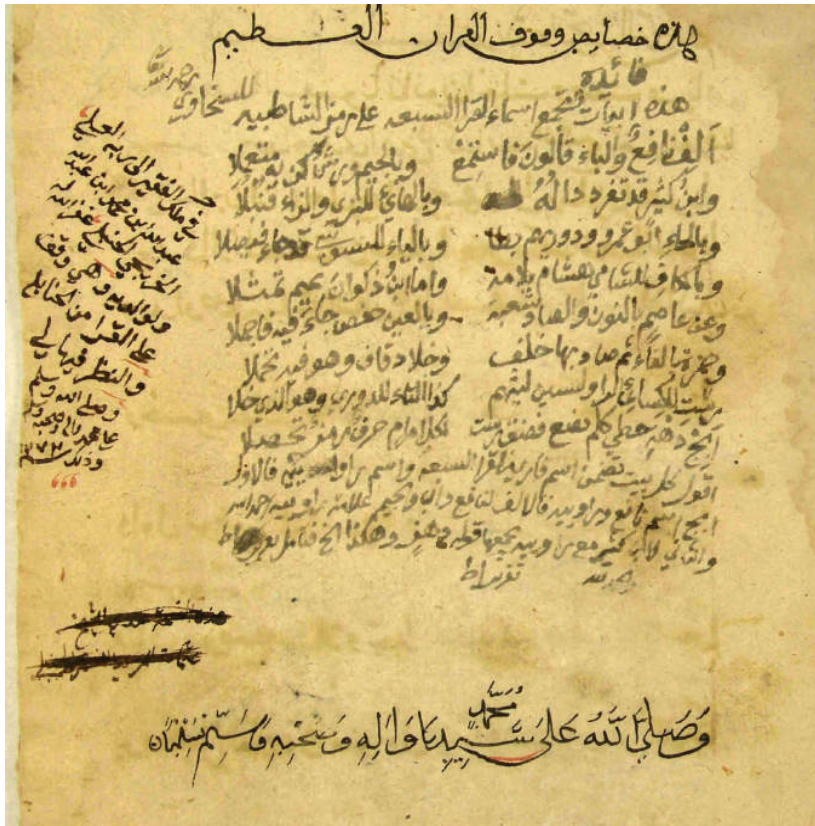 هذه خصايص وقوف القران العظيم
فائدة
هذه ابيات تجمع اسماء القرا السبعه على رمز الشاطبيه للسخاوي رحمه الله
الف نافع والباء قالون فاستمع وبالجيم ورش كن به متعملا
وابن كثير قد تفرد داله وبالهاء للبزي والزاء قنبلا
وبالحاء ابو عمرو ودوريهم بطا وبالياء للسوسي قد جاء فيصلا
وبالكاف للشامي هشام بلامه واما ابن ذكوان بميم تمثلا
وعن عاصم بالنون والصاد شعبة وبالعين حفص جاء فيه فاجملا
وحمزة بالفاء ثم ضاد بها خلف وخلاد قاف وهو فيه تحملا
ريت للكسائي الرا والسين ليثهم كذا التاء للدوري وهو الذي حلا
ابج دهز حطي كلم نصع فضق رست لكل امام حرف رمز تحصلا
اقول كل بيت تضمن اسم قاري من القرا السبعه واسم راو فالاول
ابج اسم نافع وراوييه فالالف لنافع والبا والجيم علامة راوييه
والثاني لابن كثير مع راوييه يجمعها قوله دهز وهكذا الخ
والحمد لله
في ملك الفقير الى ربه العلي
عبد الله ابن محمد ابن عبد الله
الحنبلي غفر الله له
ولوالديه وهي وقف
على القرا من الحنابله
والنظر فيها لي
وصلى الله وسلم
على محمد واله وصحبه
وذلك
وصلى الله على سيدنا محمد واله وصحبه وسلم